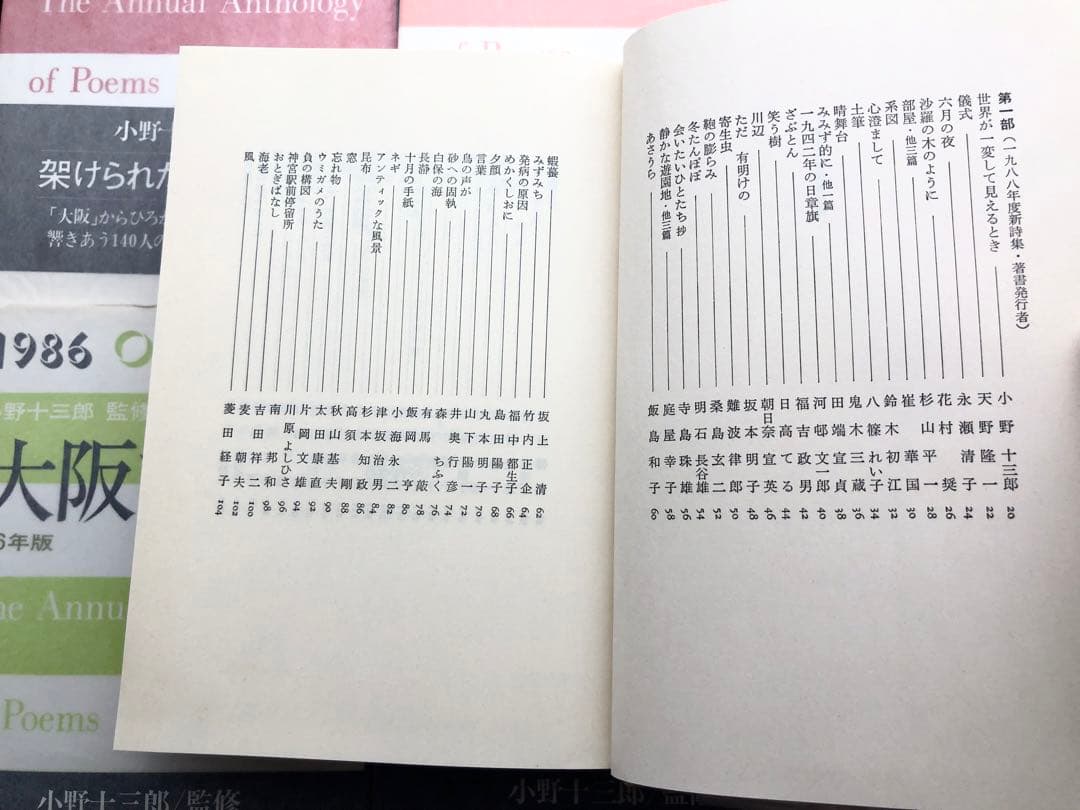 The Annual Anthology
of Poems
小野十
架けられた
「大阪」からひろが
響きあう140人の
1986
小野十三郎 監修
大阪
6年版
The Annu
Poems
小野十三郎/監修
of Poems
小野十三郎/監修
第一部(一九八八年度新詩集・著書発行者)
世界が一変して見えるとき 小野十三郎 20
儀式 天野隆一 22
六月の夜 永瀬清子 24
沙羅の木のように 花村奨 26
部屋・他三篇 杉山平一 28
系図 崔華国 30
心澄まして 鈴木初江 32
土筆 八篠れい子 34
晴舞台 鬼木三蔵 36
みみず的に・他一篇 田端宣貞 38
一九四二年の日章旗 河邨文一郎 40
ざぶとん 福吉政男 42
笑う樹 日高てる 44
川辺 朝日奈宣英 46
ただ 有明けの 坂本明子 48
寄生虫 難波律郎 50
鞄の膨らみ 桑島玄二 52
冬たんぽぽ 明石長谷雄 54
会いたいひとたち 抄 寺島珠雄 56
静かな遊園地・他三篇 庭屋幸子 58
あさうら 飯島和子 60
蝦蟇 坂上清 62
みずみち 竹内正企 64
発病の原因 福中都生子 66
めかくしおに 島田陽子 68
夕顔 丸本明子 70
言葉 山下陽一 72
鳥の声が 井奥行彦 74
砂への固執 森ちふく 76
白保の海 有馬敲 78
長瀞 飯岡亨 80
十月の手紙 小海永二 82
ネギ 津坂治男 84
アンティックな風景 杉本知政 86
昆布 高須剛 88
窓 秋山基夫 90
忘れ物 太田康直 92
ウミガメのうた 片岡文雄 94
負の構図 川原よしひさ 96
神宮駅前停留所 南邦和 98
おとぎばなし 吉田祥二 100
海老 麦朝夫 102
風 菱田経子 104